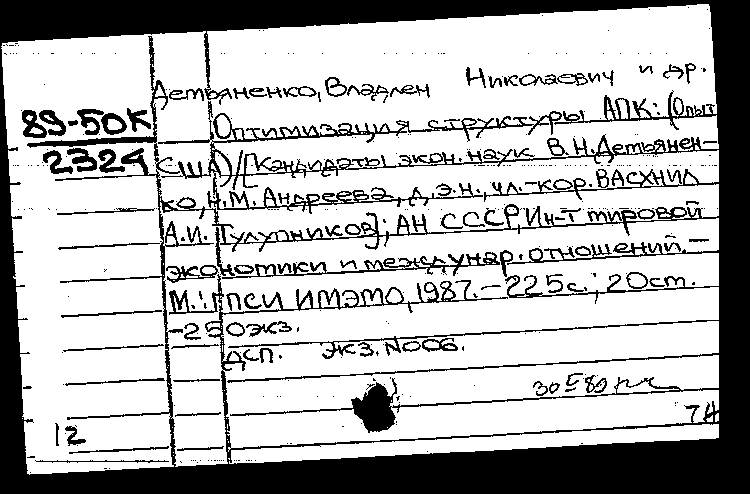 Демьяненко, Владлен Николаевич и др.
89-50К
2324
Оптимизация структуры АПК: (Опыт
США) / [Кандидаты экон. наук В.Н. Демьянен-
ко, Н.М. Андреева, д.э.н., чл.-кор. ВАСХНИЛ
А.И. Тулупников]; АН СССР, Ин-т мировой
экономики и междунар. отношений. –
М.: ГПСИ ИМЭМО, 1987. – 225 с.; 20 см.
– 250 экз.
ДСП. Экз. N006.
12
74